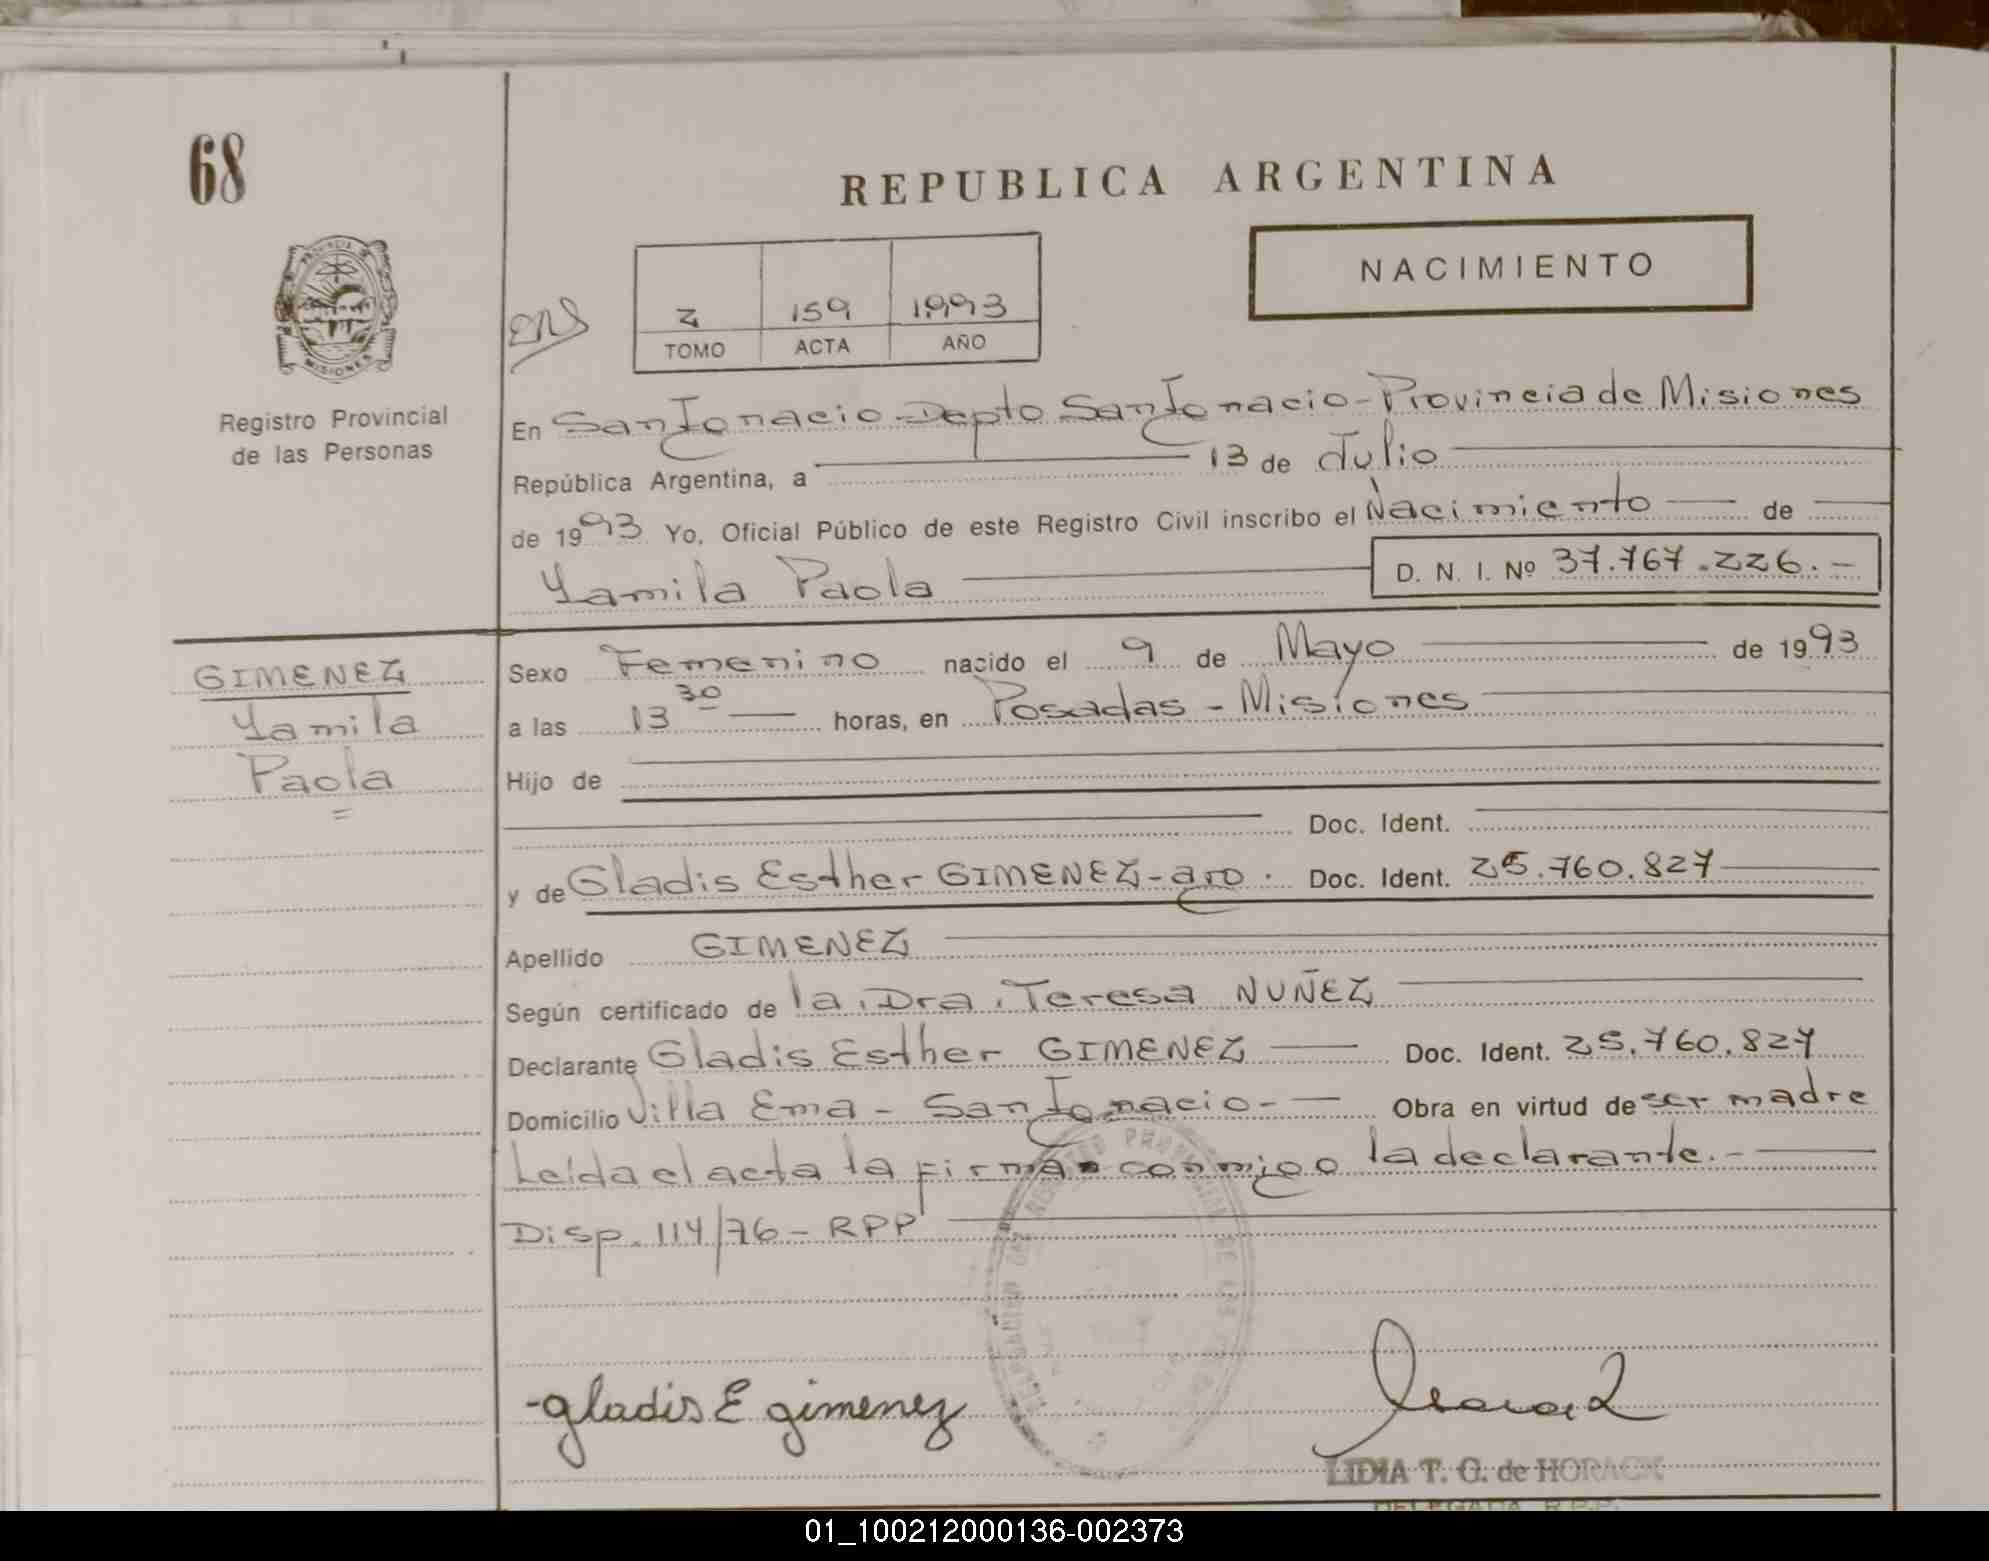 68
REPUBLICA ARGENTINA
NACIMIENTO
PROVINCIA DE
MISIONES
Registro Provincial
de las Personas
2 159 1993
TOMO ACTA AÑO
En San Ignacio - Depto San Ignacio - Provincia de Misiones
República Argentina, a 13 de Julio
de 1993 Yo, Oficial Público de este Registro Civil inscribo el Nacimiento de
Yamila Paola D. N. I. Nº 37.767.226.-
GIMENEZ
Yamila
Paola
=
Sexo Femenino nacido el 9 de Mayo de 1993
a las 13 30 horas, en Posadas - Misiones
Hijo de
Doc. Ident.
y de Gladis Esther GIMENEZ - arg. Doc. Ident. 25.760.827
Apellido GIMENEZ
Según certificado de la Dra. Teresa NUÑEZ
Declarante Gladis Esther GIMENEZ Doc. Ident. 25.760.827
Domicilio Villa Ema - San Ignacio - Obra en virtud de ser madre
Leída el acta la firma conmigo la declarante.-
Disp. 114/76 - RPP
-gladis E gimenez
LIDIA T. G. de HORACK
DELEGADA R.P.P.
01_100212000136-002373